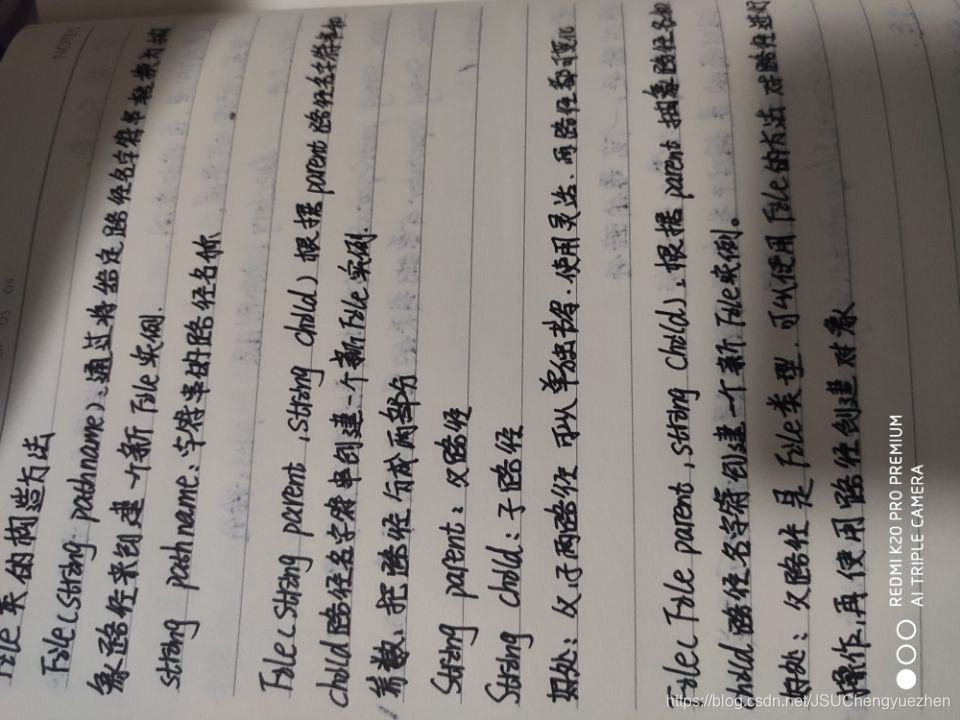 File类的构造方法
File(String pathname):通过将给定路径名字符串转换为抽
象路径来创建一个新File实例.
String pathname:字符串的路径名称
File(String parent,String child)根据parent路径名字符串和
child路径名字符串创建一个新File实例.
参数:把路径分成两部分
String parent:父路径
String child:子路径
好处:父子两路径可以单独书写.使用灵活.两路径都可变化
File(File parent,String child):根据parent抽象路径名和
child路径名字符创建一个新File实例。
好处:父路径是File类型.可以使用File的方法对路径进行
操作,再使用路径创建对象
NOTE
REDMI K20 PRO PREMIUM
AI TRIPLE CAMERA
https://blog.csdn.net/JSUChengyuezhen